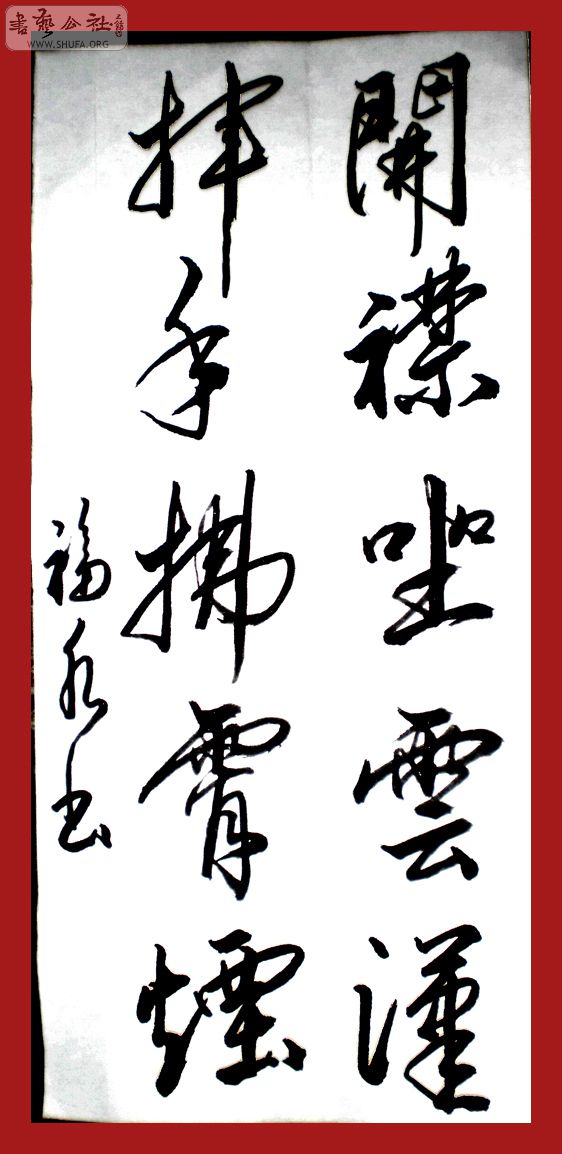 書藝公社
WWW.SHUFA.ORG
開襟坐雲漢
揮手拂霄煙
福永书